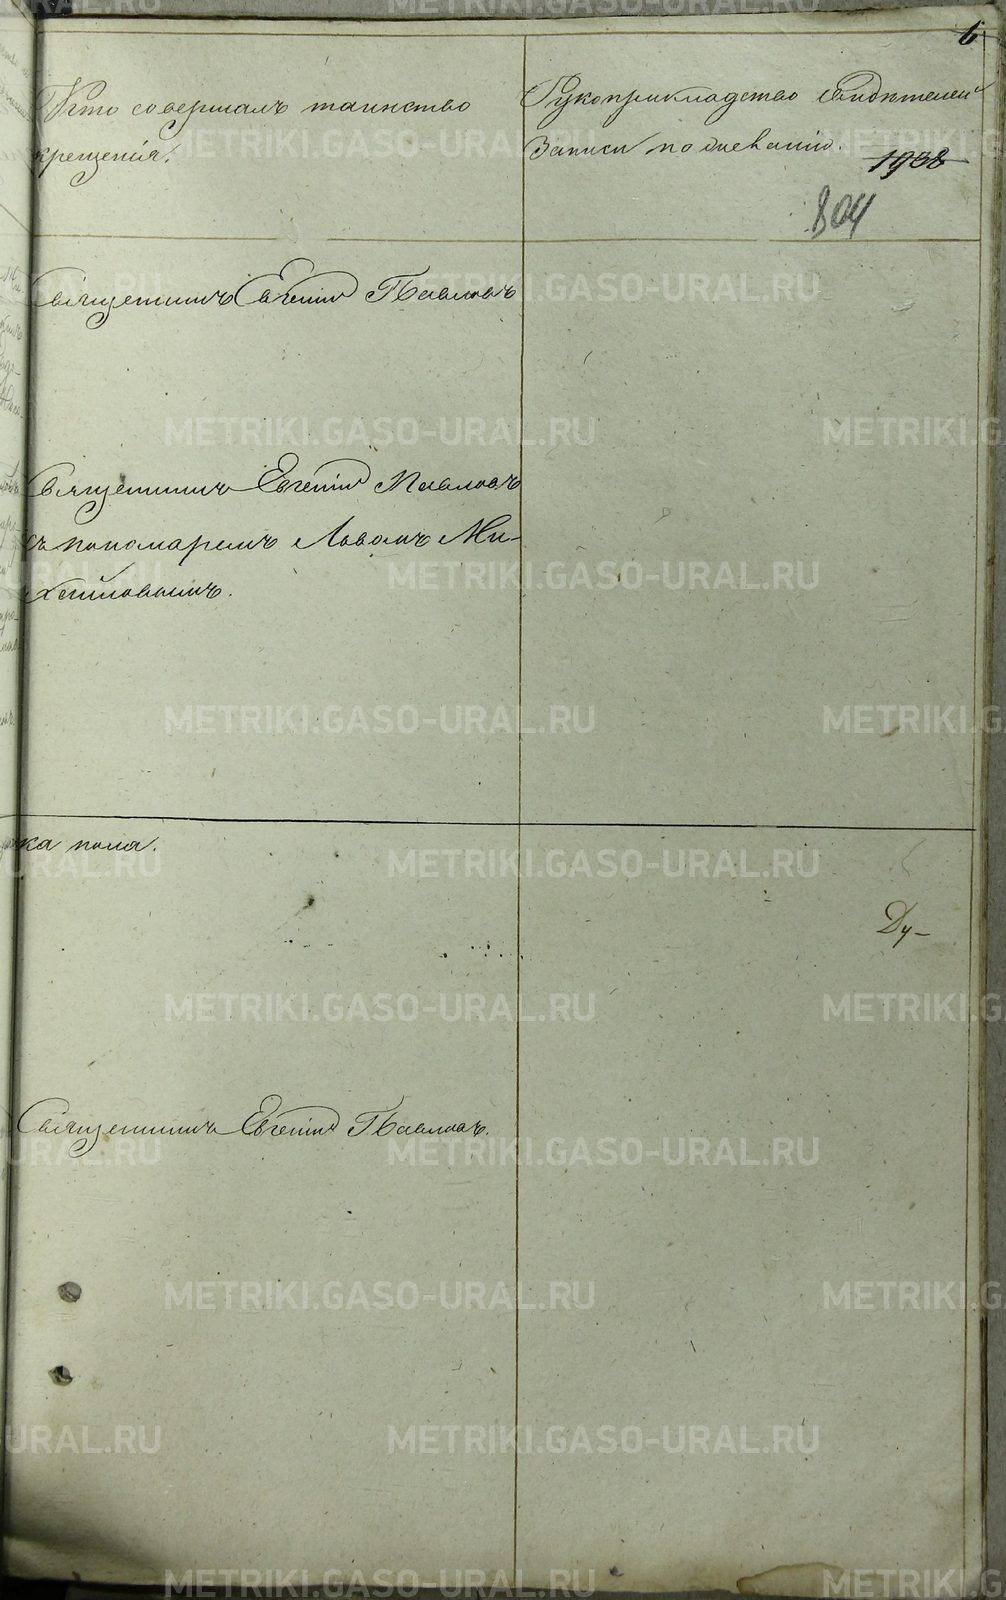 6
Кто совершалъ таинство
крещенія.
Рукоприкладство свидѣтелей
записи по желанію.
1938
804
Священникъ Евгеній Павловъ
Священникъ Евгеній Павловъ
съ пономаремъ Львомъ Ми-
хайловымъ.
ка пола.
Ду-
Священникъ Евгеній Павловъ.
METRIKI.GASO-URAL.RU